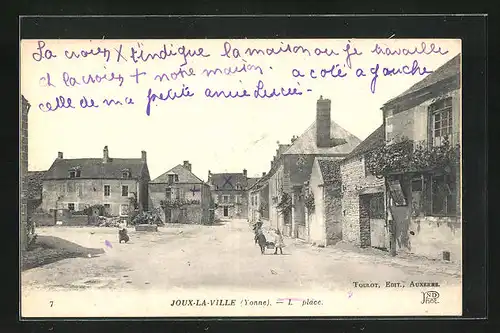 La croix X t'indique la maison ou je travaille
et la croix + notre maison. a coté a gauche
celle de ma petite amie Lucie.
Toulot, Edit., Auxerre.
7 JOUX-LA-VILLE (Yonne). — L place. ND PHOT